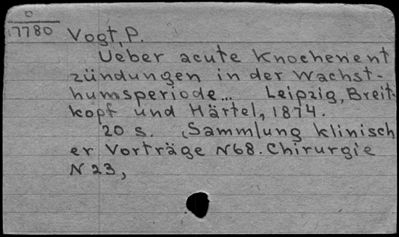 O
17780
Vogt, P.
Ueber acute Knochenent
zündungen in der Wachst-
humsperiode... Leipzig, Breit-
kopf und Härtel, 1874.
20 s. (Sammlung klinisch
er Vorträge N68. Chirurgie
N 23,